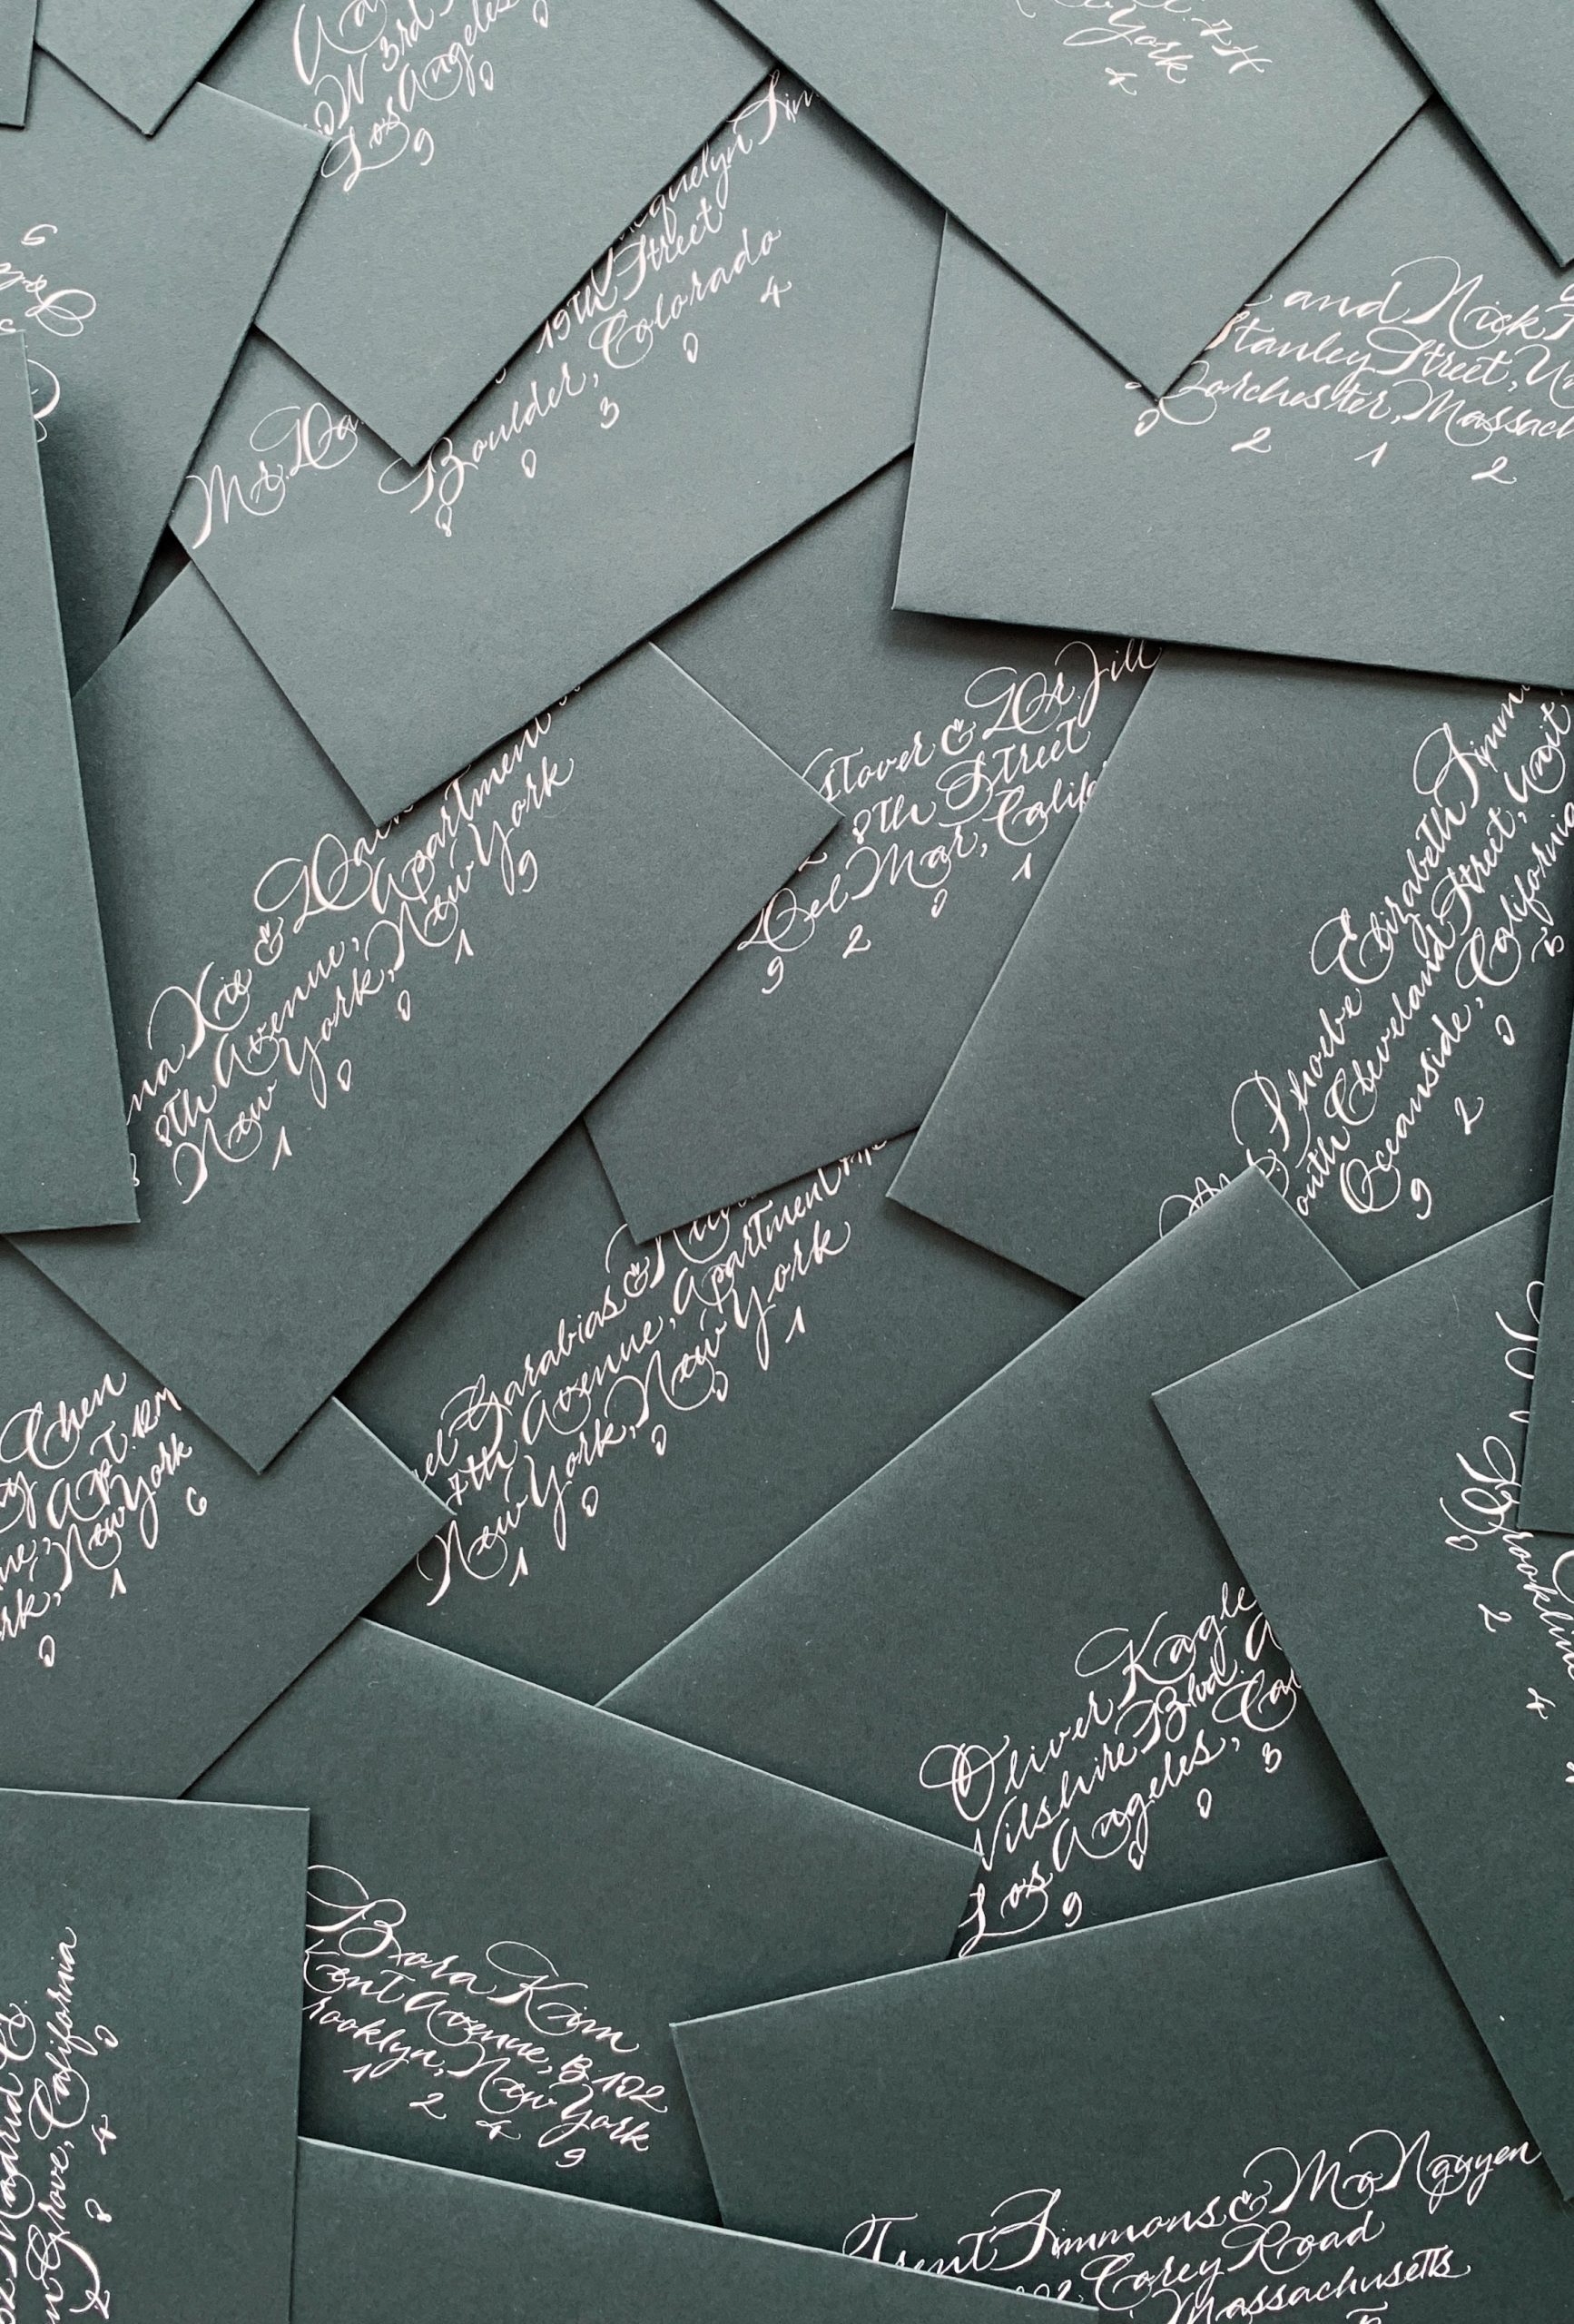 W 3rd
Los Angeles
9 0 0
York
4
quelyn
19th Street
Mr. Da
Boulder, Colorado
8 0 3 0 4
and Nick
Stanley Street,
Dorchester, Massach
0 2 1 2
Xie &
8th Avenue, Apartment
New York, New York
1 0 0 1 9
stover & Dr. Jill
8th Street
Del Mar, Calif
9 2 0 1
Phoebe Elizabeth Simm
outh Cleveland Street, Unit
Oceanside, California
9 2 0 5
el Sarabias &
7th Avenue, Apartment
New York, New York
1 0 0 0 1
Chen
Apt. 12M
rk, New York
0 1 6
Oliver Kagle
Wilshire Blvd. A
Los Angeles, Cal
9 0 0 3
Brookline
0 2 4
Bora Kim
Kent Avenue, B 102
rooklyn, New York
1 2 4 9
Madrid
n Grove, California
2 8 4 0
Trent Simmons & Mo Nguyen
Corey Road
Massachusetts